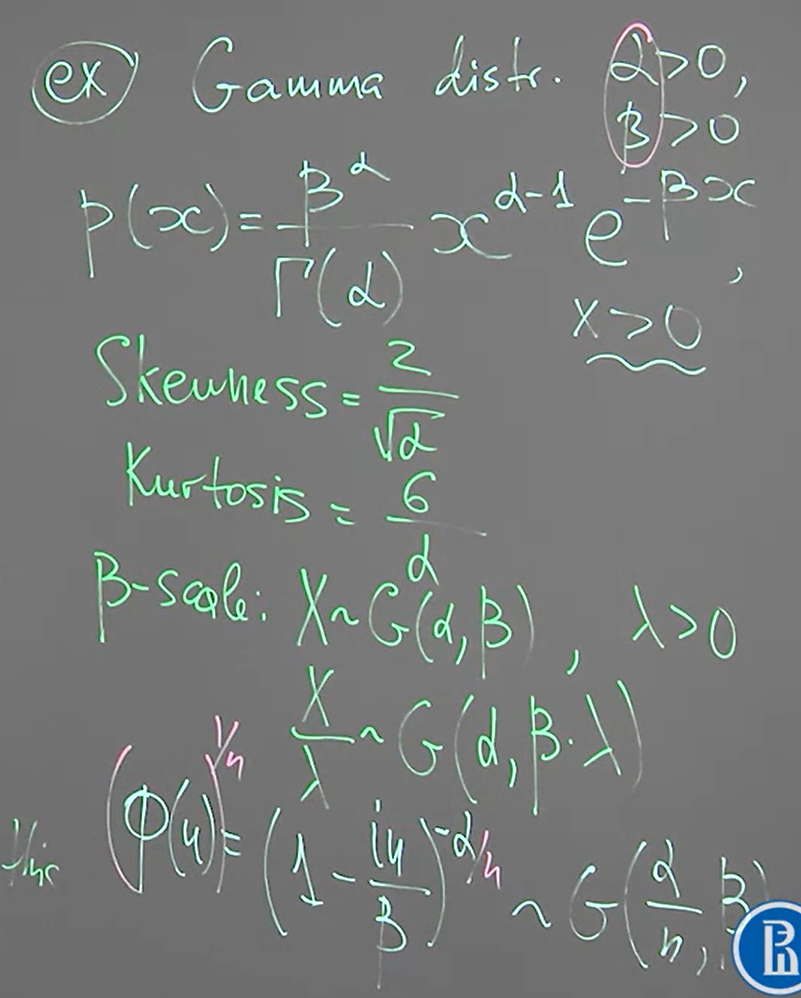 ex Gamma distr. α>0,
β>0
p(x)= β^α / Γ(α) x^(α-1) e^(-βx),
x>0
Skewness = 2/√α
Kurtosis = 6/α
β-scale: X~G(α,β), λ>0
X/λ ~ G(α, β·λ)
(Φ(u))^(1/n) = (1 - iu/β)^(-α/n) ~ G(α/n, β)